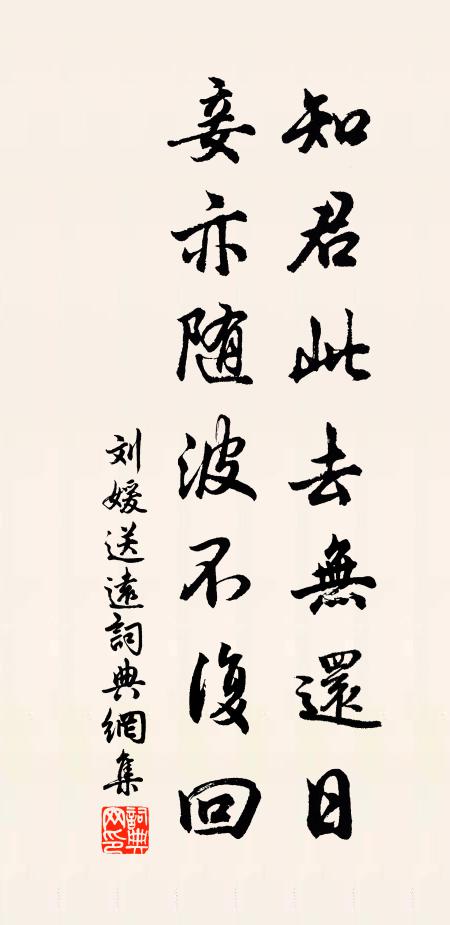 知君此去無還日
妾亦随波不復回
刘媛送遠詞典網集
詞典网印